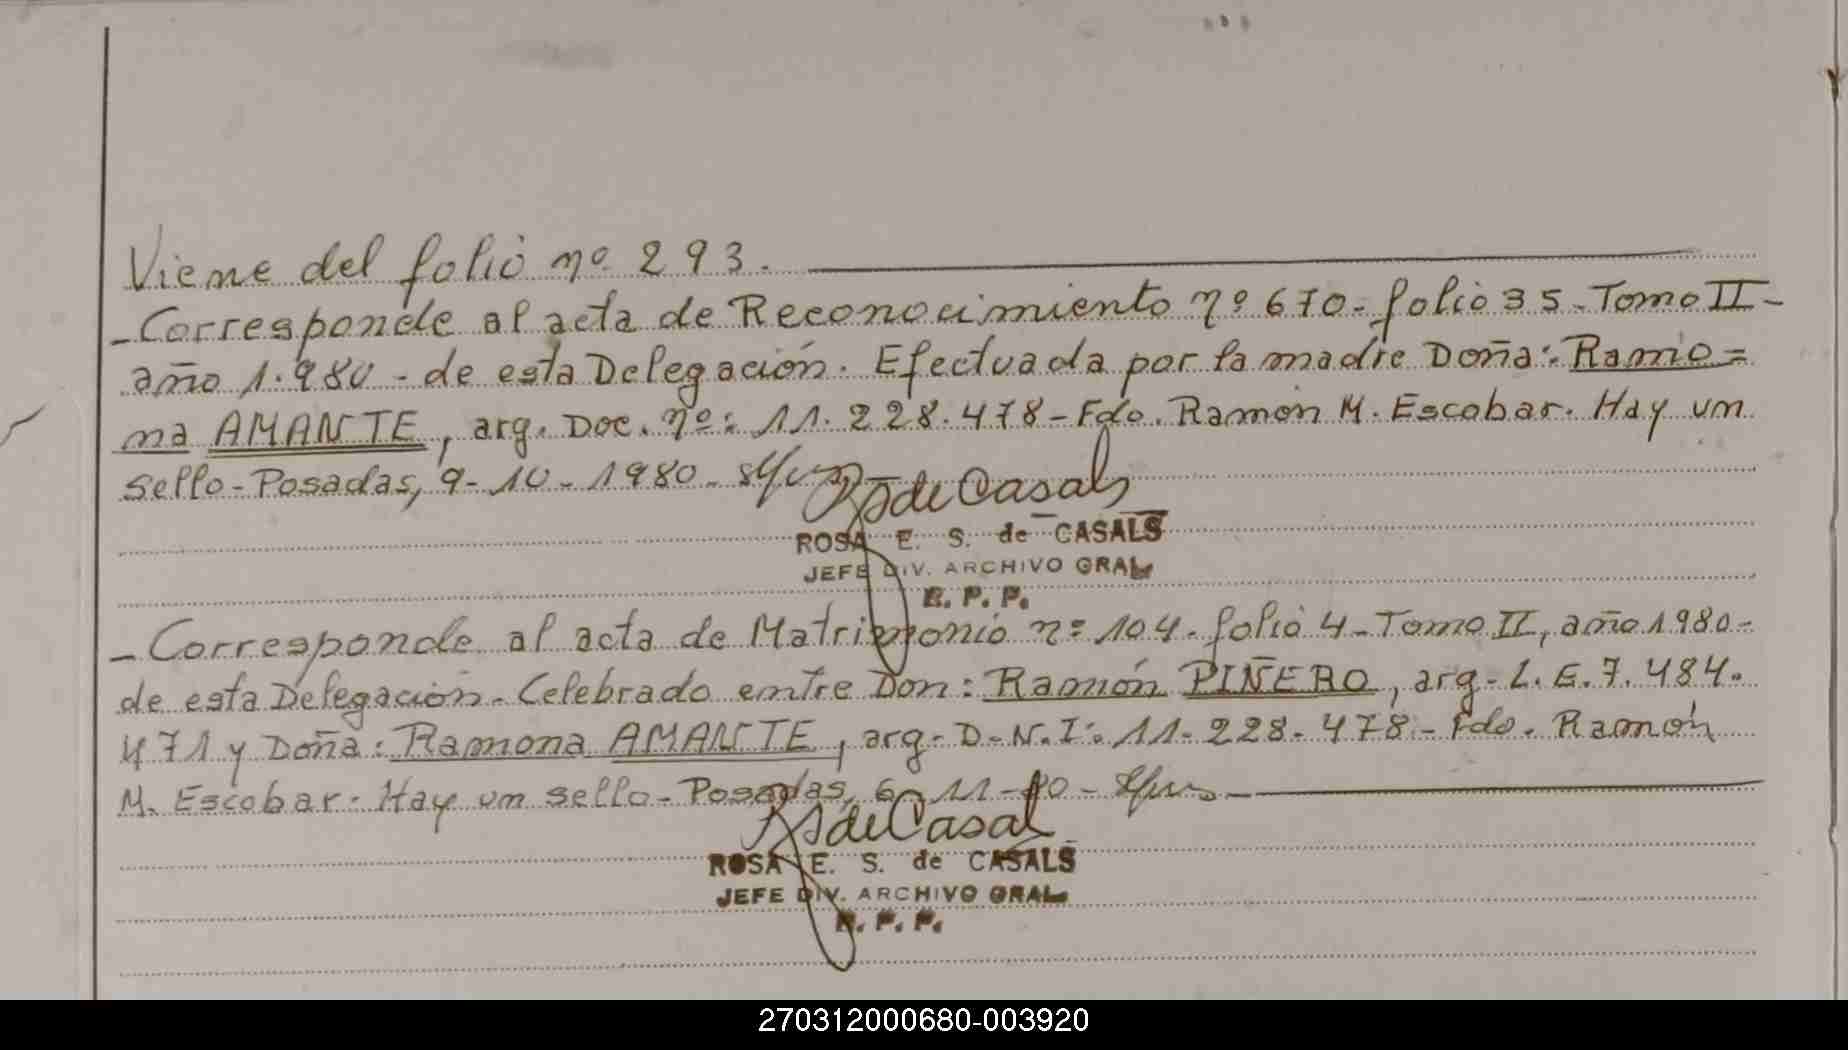 Viene del folio nº 293.
- Corresponde al acta de Reconocimiento nº 670- folio 35-Tomo II-
año 1.980 - de esta Delegación. Efectuada por la madre Doña: Ramo=
na AMANTE, arg. Doc. nº: 11.228.478-Fdo. Ramón M. Escobar. Hay un
sello-Posadas, 9-10-1980-
RS de Casals
ROSA E. S. de CASALS
JEFE DIV. ARCHIVO GRAL
E. P. P.
- Corresponde al acta de Matrimonio nº 104. folio 4-Tomo II, año 1980-
de esta Delegación-Celebrado entre Don: Ramón PIÑERO, arg-L.E.7.484.
471 y Doña: Ramona AMANTE, arg-D-N.I: 11-228-478-Fdo. Ramón
M. Escobar. Hay un sello-Posadas, 6-11-80-
RS de Casal
ROSA E. S. de CASALS
JEFE DIV. ARCHIVO GRAL
R. P. P.
270312000680-003920